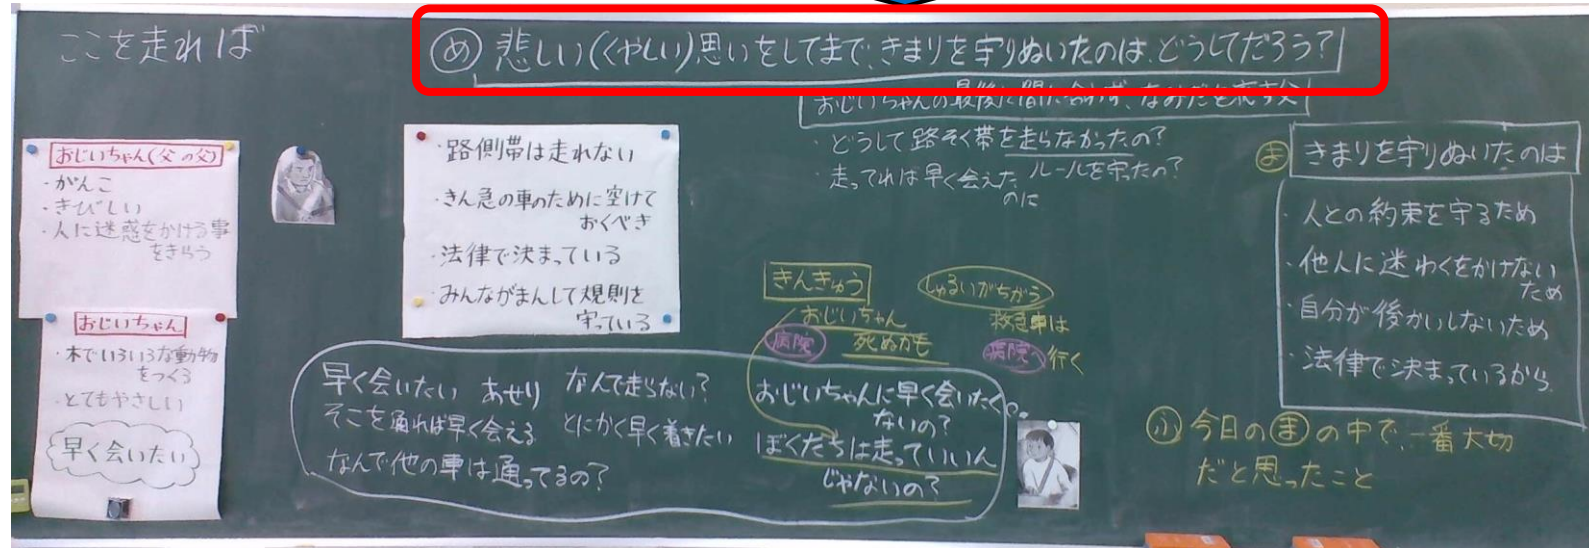 ここを走れば
め 悲しい(くやしい)思いをしてまで、きまりを守りぬいたのは、どうしてだろう?
おじいちゃんの最後に間に合わず、なみだを流す父
・どうして路そく帯を走らなかったの?
・走ってれば早く会えた のに ルールを守ったの?
おじいちゃん(父の父)
・がんこ
・きびしい
・人に迷惑をかける事
をきらう
おじいちゃん
・木でいろいろな動物
をつくる
・とてもやさしい
早く会いたい
・路側帯は走れない
・きん急の車のために空けて
おくべき
・法律で決まっている
・みんながまんして規則を
守っている
きんきゅう
おじいちゃん
病院 死ぬかも
しゅるいがちがう
救急車は
病院へ行く
早く会いたい あせり なんで走らない?
そこを通れば早く会える とにかく早く着きたい
なんで他の車は通ってるの?
おじいちゃんに早く会いたく
ないの?
ぼくたちは走っていいん
じゃないの?
ま きまりを守りぬいたのは
・人との約束を守るため
・他人に迷わくをかけない
ため
・自分が後かいしないため
・法律で決まっているから
ふ 今日のまの中で、一番大切
だと思ったこと